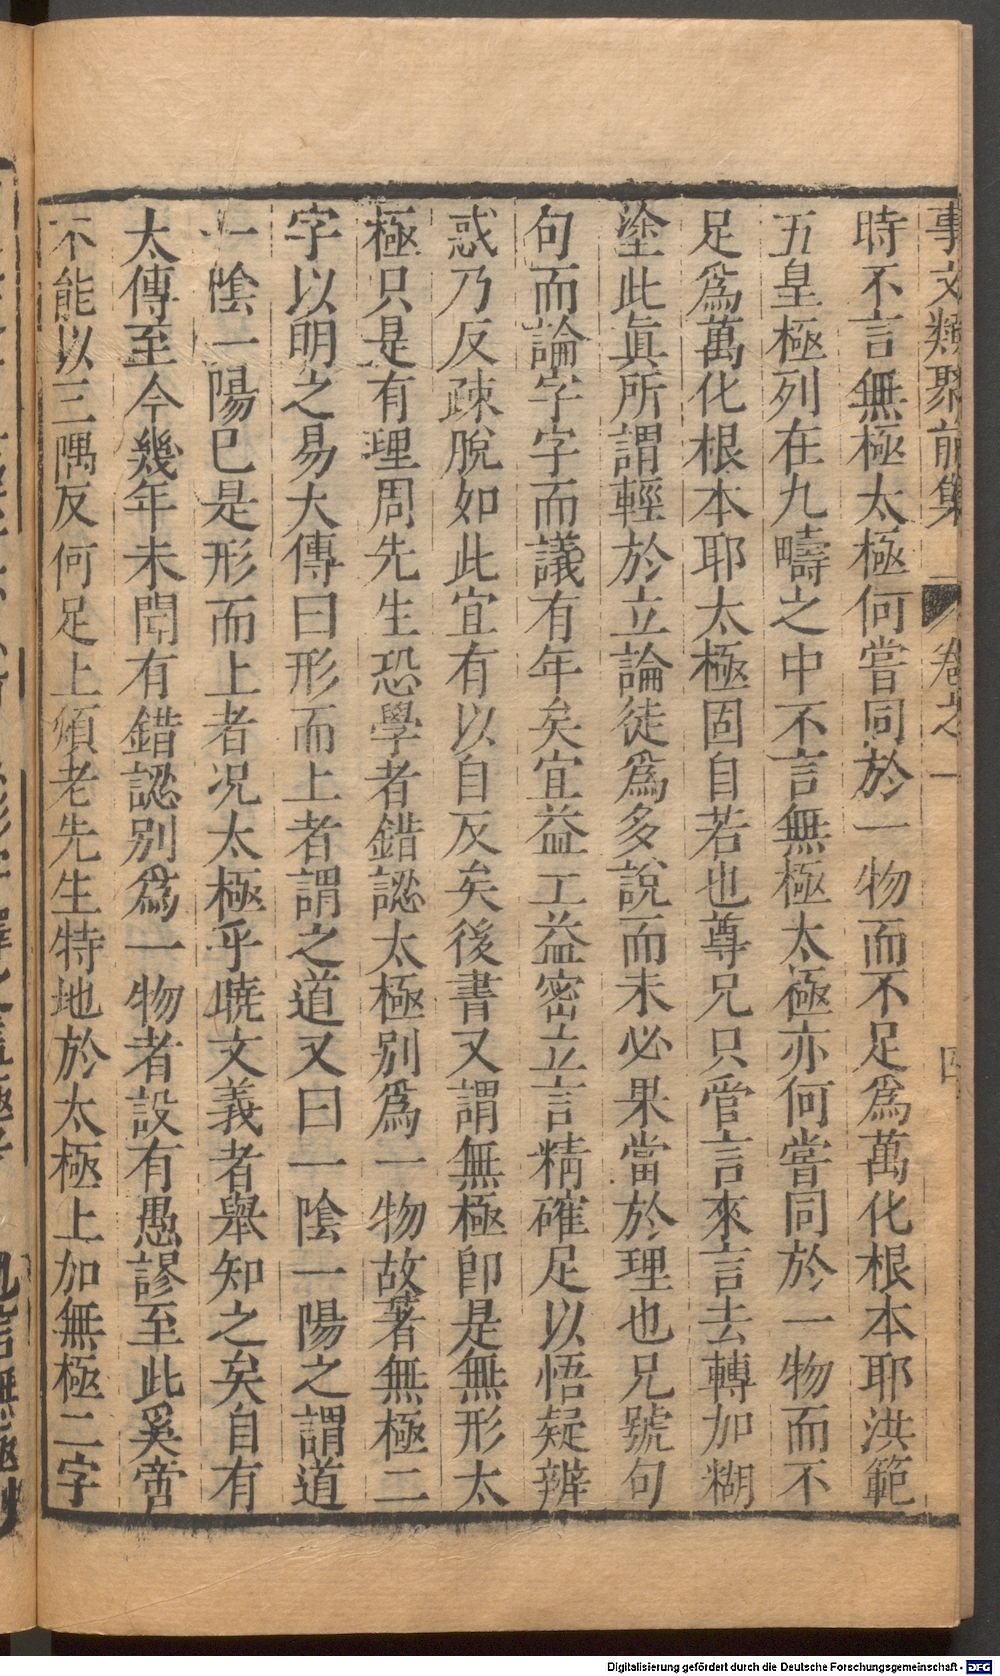 事文類聚前集 卷之一 四
時不言無極太極何嘗同於一物而不足爲萬化根本耶洪範
五皇極列在九疇之中不言無極太極亦何嘗同於一物而不
足爲萬化根本耶太極固自若也尊兄只管言來言去轉加糊
塗此眞所謂輕於立論徒爲多說而未必果當於理也兄號句
句而論字字而議有年矣宜益工益密立言精確足以悟疑辨
惑乃反疎脫如此宜有以自反矣後書又謂無極卽是無形太
極只是有理周先生恐學者錯認太極別爲一物故著無極二
字以明之易大傳曰形而上者謂之道又曰一陰一陽之謂道
一陰一陽已是形而上者况太極乎曉文義者舉知之矣自有
太傳至今幾年未聞有錯認別爲一物者設有愚謬至此奚啻
不能以三隅反何足上煩老先生特地於太極上加無極二字
Digitalisierung gefördert durch die Deutsche Forschungsgemeinschaft - DFG